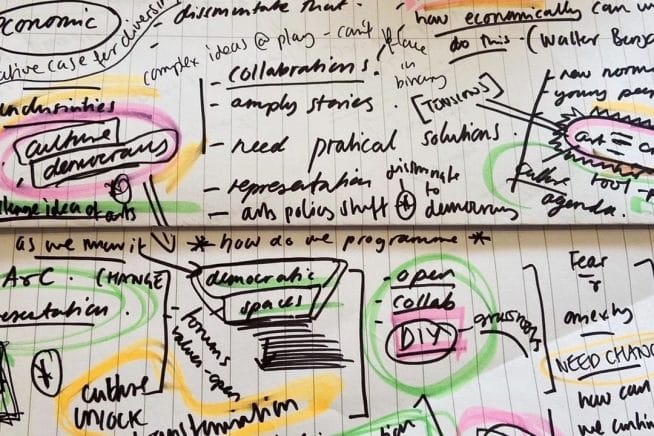 economic
disseminate that
how economically can w
do this - (Walter Benj
ative case for diversi
complex ideas @ play - can't place
in
binary
- collaborations
industries
- amply stories
[TENSIONS]
- new norm
- young peop
culture
democracy
- need pratical solutions.
art =
- representation
disseminate
to
- arts policy shift * democracy
agenda.
idea of arts
as we know it
* how do we programme *
ArC. (CHANGE
esentation
democratic
spaces
- forums
values - open
- open
- collab
- DIY
grassroots
Fear
anxiety
NEED CHANG
how can
we
culture
UNLOCK